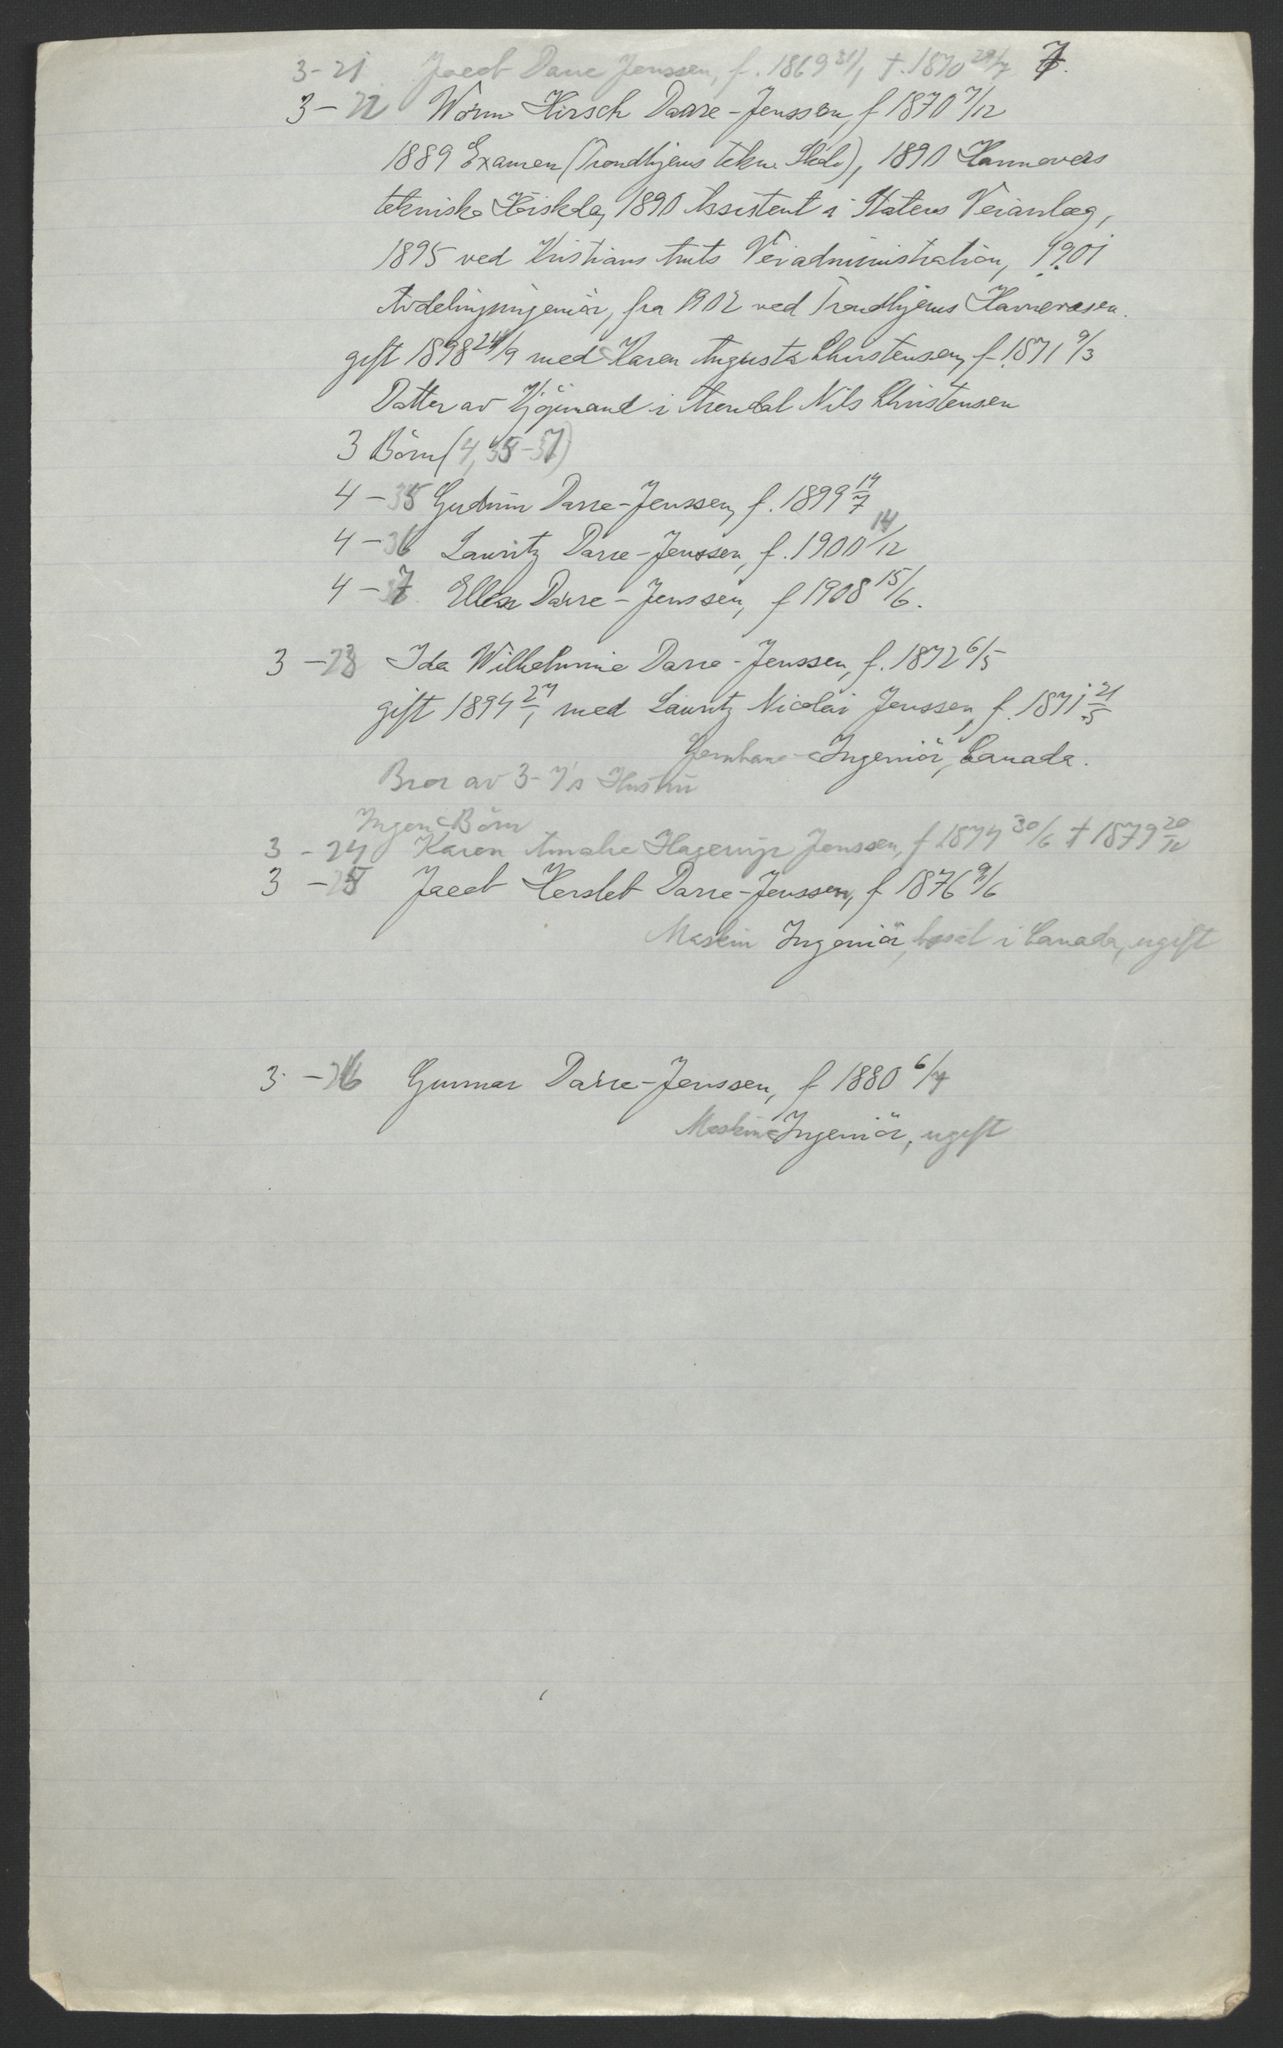 3-21 Jacob Darre Jenssen, f. 1869 31/1 †. 1870 29/7 7.
3-22 Worm Hirsch Darre-Jenssen, f 1870 7/12
1889 Examen (Trondhjems tekn. Skole), 1890 Hannovers
tekniske Höiskole, 1890 Assistent i Statens Veianlæg,
1895 ved Kristians Amts Veiadministration, 1901
Avdelingsingeniör, fra 1902 ved Trondhjems Havnevæsen.
gift 1898 24/9 med Karen Augusta Christensen, f. 1871 9/3
Datter av Kjöpmand i Arendal Nils Christensen
3 Börn (4, 35-37)
4-35 Gudrun Darre-Jenssen, f. 1899 14/7
4-36 Lauritz Darre-Jenssen, f. 1900 14/12
4-37 Ellen Darre-Jenssen, f 1908 15/6.
3-23 Ida Wilhelmine Darre-Jenssen, f. 1872 6/5
gift 1894 27/1 med Lauritz Nicolai Jenssen, f. 1871 21/5
Jernbane-Ingeniör, Canada.
Bror av 3-7's Hustru
Ingen Börn
3-24 Karen Amalie Hagerup Jenssen, f 1874 30/6 † 1879 20/12
3-25 Jacob Herslet Darre-Jenssen, f 1876 9/6
Maskin Ingeniör, bosat i Canada, ugift
3-26 Gunnar Darre-Jenssen, f 1880 6/4
Maskin Ingeniör, ugift